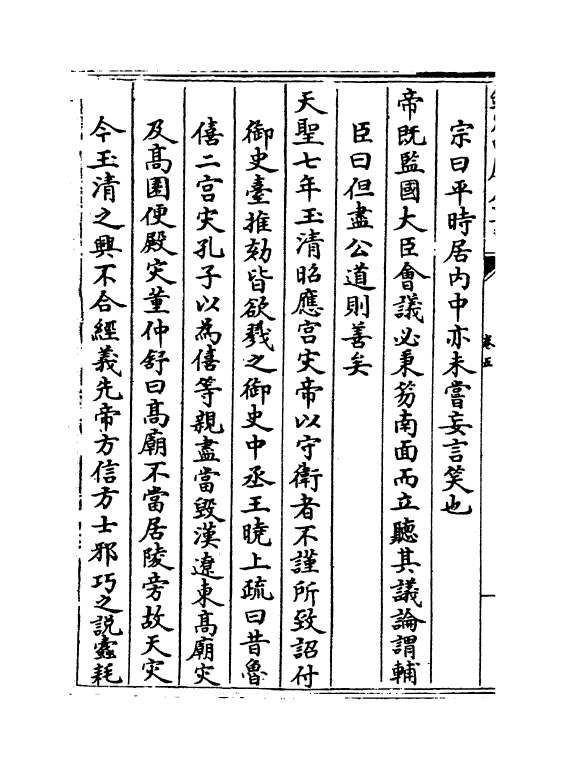 宗曰平時居内中亦未嘗妄言笑也
帝既監國大臣會議必秉笏南面而立聽其議論謂輔
臣曰但盡公道則善矣
天聖七年玉清昭應宫灾帝以守衛者不謹所致詔付
御史臺推劾皆欲戮之御史中丞王曉上疏曰昔魯
僖二宫灾孔子以為僖等親盡當毀漢遼東髙廟灾
及髙園便殿灾董仲舒曰髙廟不當居陵旁故天灾
今玉清之興不合經義先帝方信方士邪巧之説蠧耗
卷五